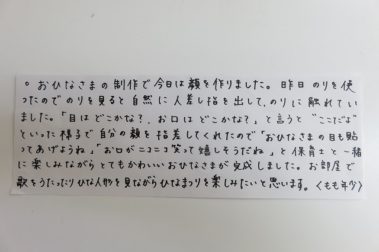 ○ おひなさまの制作で今日は顔を作りました。昨日 のりを使
ったのでのりを見ると自然に人差し指を出して、のりに触れてい
ました。「目はどこかな?お口はどこかな?」と言うと"ここだよ"
といった様子で自分の顔を指差してくれたので「おひなさまの目も貼
ってあげようね」「お口がニコニコ笑って嬉しそうだね」と保育士と一緒
に楽しみながらとてもかわいいおひなさまが完成しました。お部屋で
歌をうたったりひな人形を見ながらひなまつりを楽しみたいと思います。〈もも年少〉